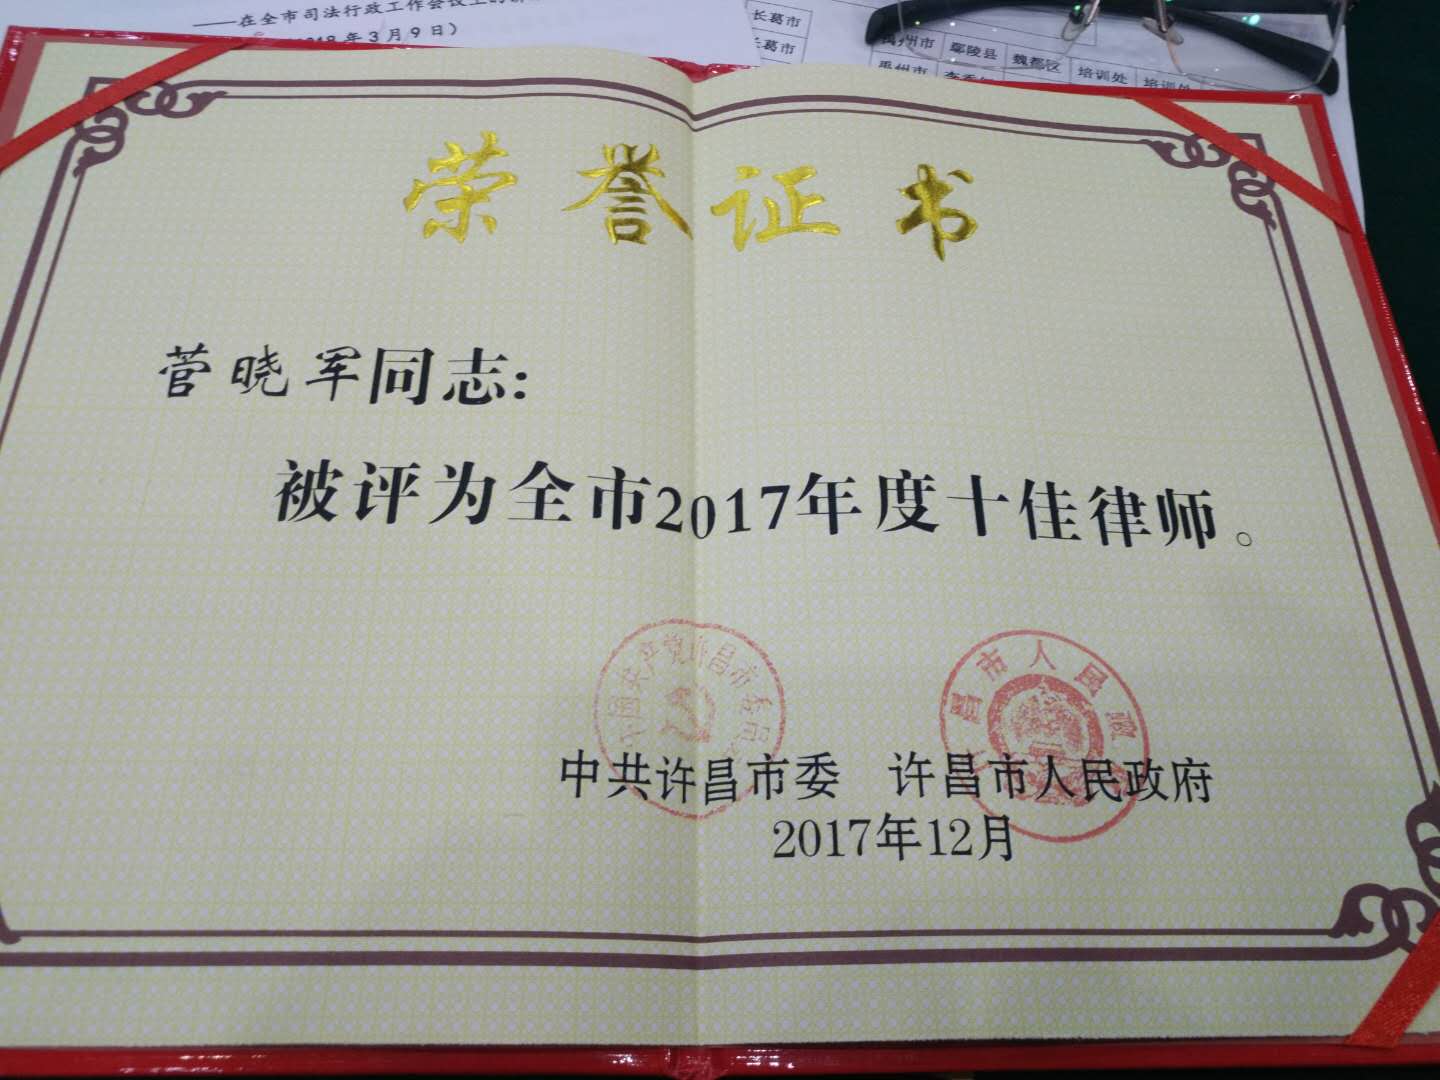 ——在全市司法行政工作会议上的
年3月9日）
长葛市
长葛市
禹州市 鄢陵县 魏都区 培训处 培训处
禹州市
荣誉证书
菅晓军同志:
被评为全市2017年度十佳律师。
中国共产党许昌市委员
昌市人民政
中共许昌市委 许昌市人民政府
2017年12月